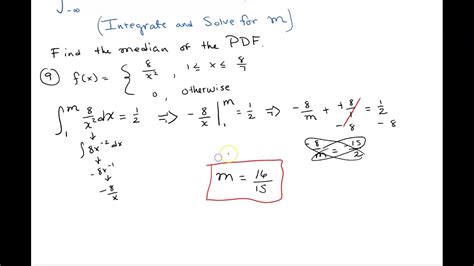 ∫-∞
(Integrate and Solve for m)
Find the median of the PDF.
⑨ f(x) = { 8/x² , 1 ≤ x ≤ 8/7
0, otherwise
∫₁ᵐ 8/x² dx = 1/2 => -8/x |₁ᵐ = 1/2 => -8/m + 8/1 = 1/2
-8 -8
∫8x⁻² dx
-8x⁻¹
-8/x
-8/m = -15/2
m = 16/15